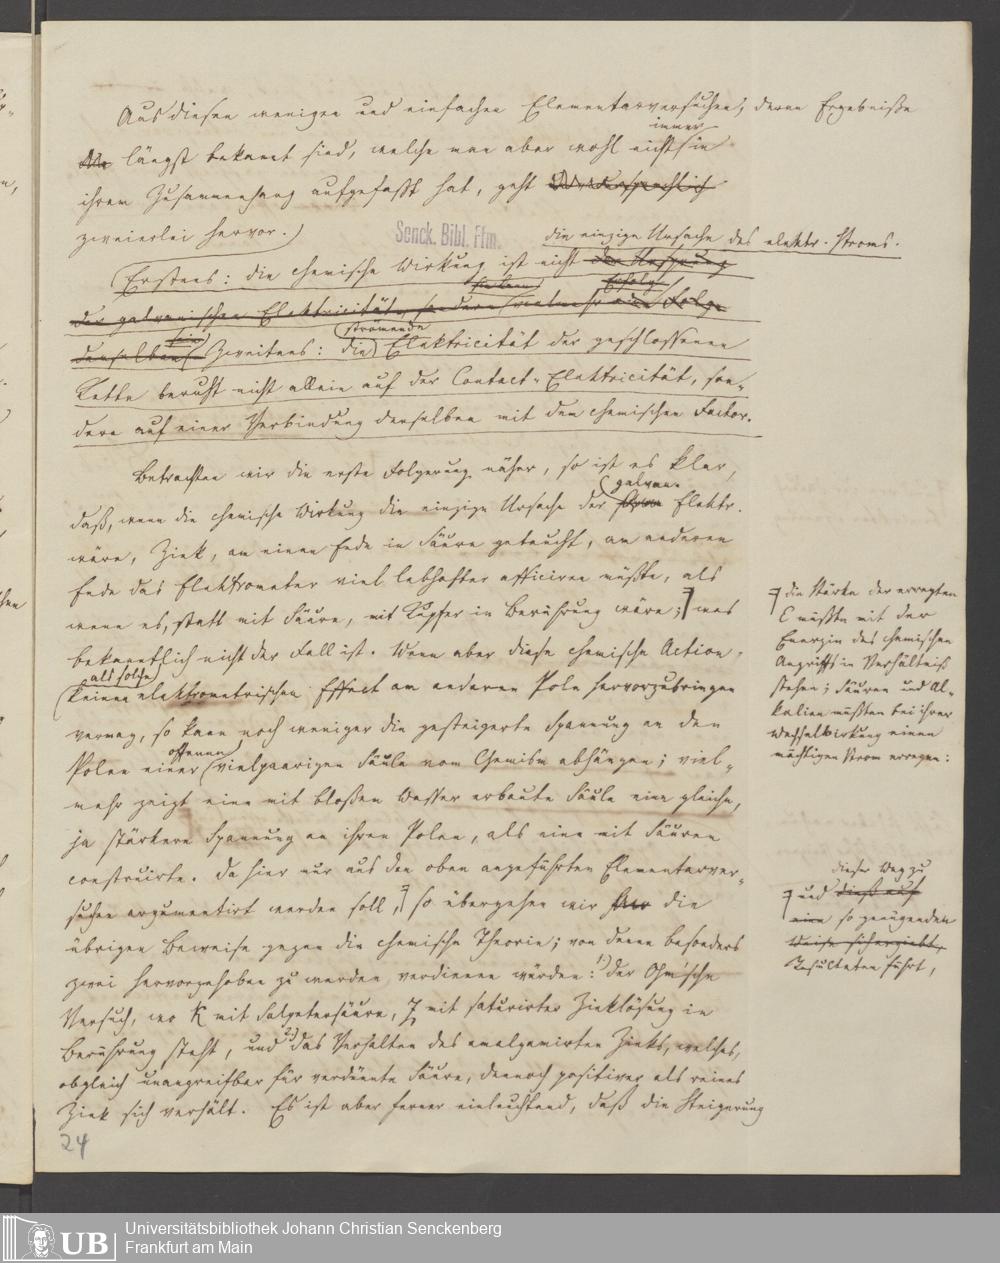 Aus diesen wenigen und einfachen Elementarversuchen, deren Ergebniße
immer
die längst bekannt sind, welche man aber wohl nicht in
ihrem Zusammenhang aufgefaßt hat, geht
zweierlei hervor.
Senck. Bibl. Ffm.
die einzige Ursache des elektr. Stroms.
Erstens: die chemische Wirkung ist nicht der Ursprung
der galvanischen Elektricität, sondern vielmehr eine Folge
Erfolg
derselben Zweitens: die Elektricität der geschlossenen
strömende
Kette beruht nicht allein auf der Contact-Elektricität, son-
dern auf einer Verbindung derselben mit dem chemischen Factor.
Betrachten wir die erste Folgerung näher, so ist es klar,
galvan.
daß, wenn die chemische Wirkung die einzige Ursache der Elektr.
wäre, Zink, an einem Ende in Säure getaucht, am anderen
Ende das Elektrometer viel lebhafter afficiren müßte, als
wenn es, statt mit Säure, mit Kupfer in Berührung wäre; was
bekanntlich nicht der Fall ist. Wenn aber diese chemische Action
als solche
keinen elektrometrischen Effect am anderen Pole hervorzubringen
vermag, so kann noch weniger die gesteigerte Spannung an den
offenen
Polen einer vielpaarigen Säule vom Chemism abhängen; viel-
mehr zeigt eine mit bloßem Wasser erbaute Säule eine gleiche,
ja stärkere Spannung an ihren Polen, als eine mit Säuren
construirte. Da hier nur aus den oben angeführten Elementarver-
suchen argumentirt werden soll, so übergehen wir die
übrigen Beweise gegen die chemische Theorie; von denen besonders
zwei hervorgehoben zu werden verdienen würden: 1) der Ohm'sche
Versuch, wo K mit Salpetersäure, Z mit saturirter Zinklösung in
Berührung steht, und 2) das Verhalten des amalgamirten Zinks, welches,
obgleich unangreifbar für verdünnte Säure, dennoch positiver als reines
Zink sich verhält. Es ist aber ferner einleuchtend, daß die Steigerung
die Stärke der erregten
E müßte mit der
Energie des chemischen
Angriffs in Verhältniß
stehen; Säuren und Al-
kalien müßten bei ihrer
Wechselwirkung einen
mächtigen Strom erregen:
dieser Weg zu
und dieß auf
eine so genügenden
Weise
Resultaten führt,
24
UB
Universitätsbibliothek Johann Christian Senckenberg
Frankfurt am Main